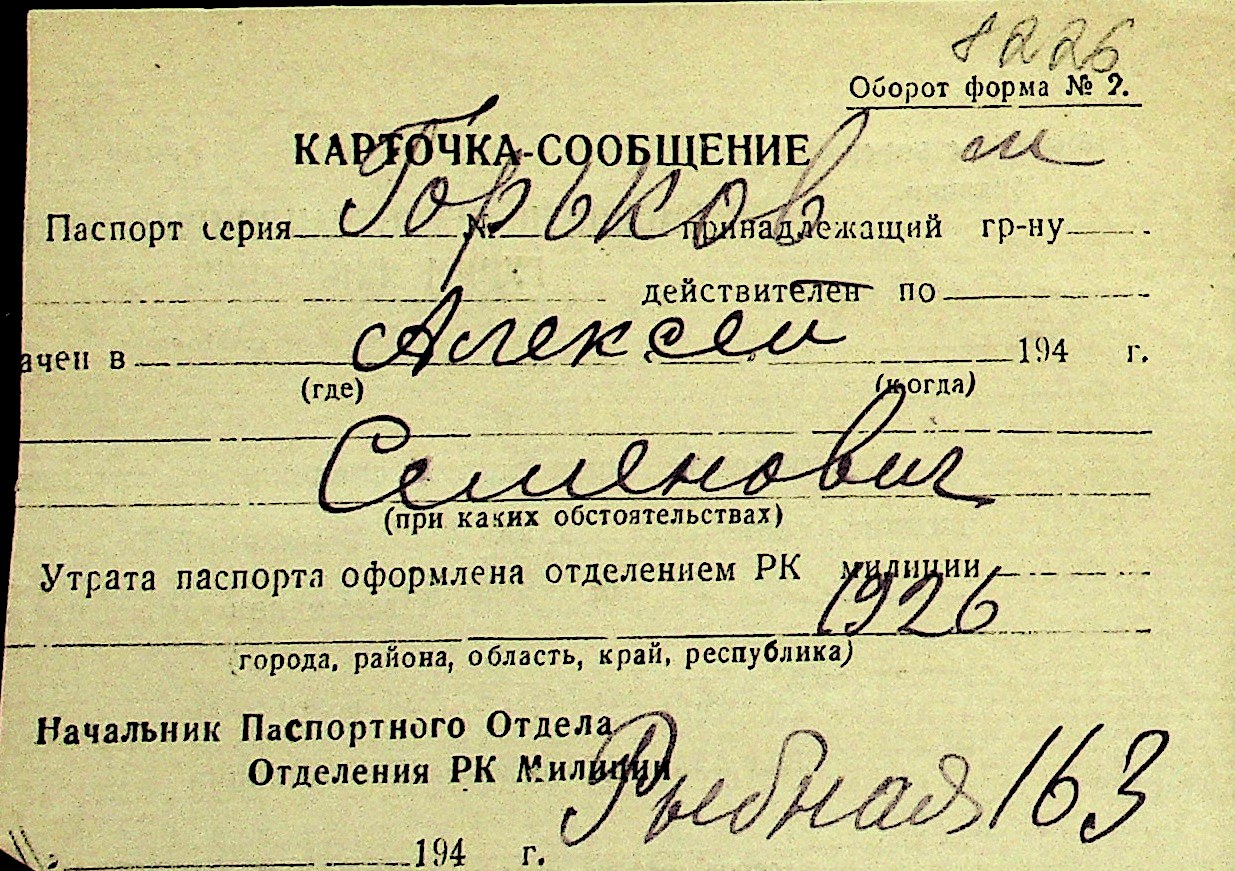 8226
Оборот форма № 2.
КАРТОЧКА-СООБЩЕНИЕ м
Горьков
Паспорт серия № принадлежащий гр-ну
действителен по
Алексей
ачен в 194 г.
(где) (когда)
Семенович
(при каких обстоятельствах)
Утрата паспорта оформлена отделением РК милиции
1926
города, района, область, край, республика)
Начальник Паспортного Отдела
Отделения РК Милиции
Рыбная 163
194 г.